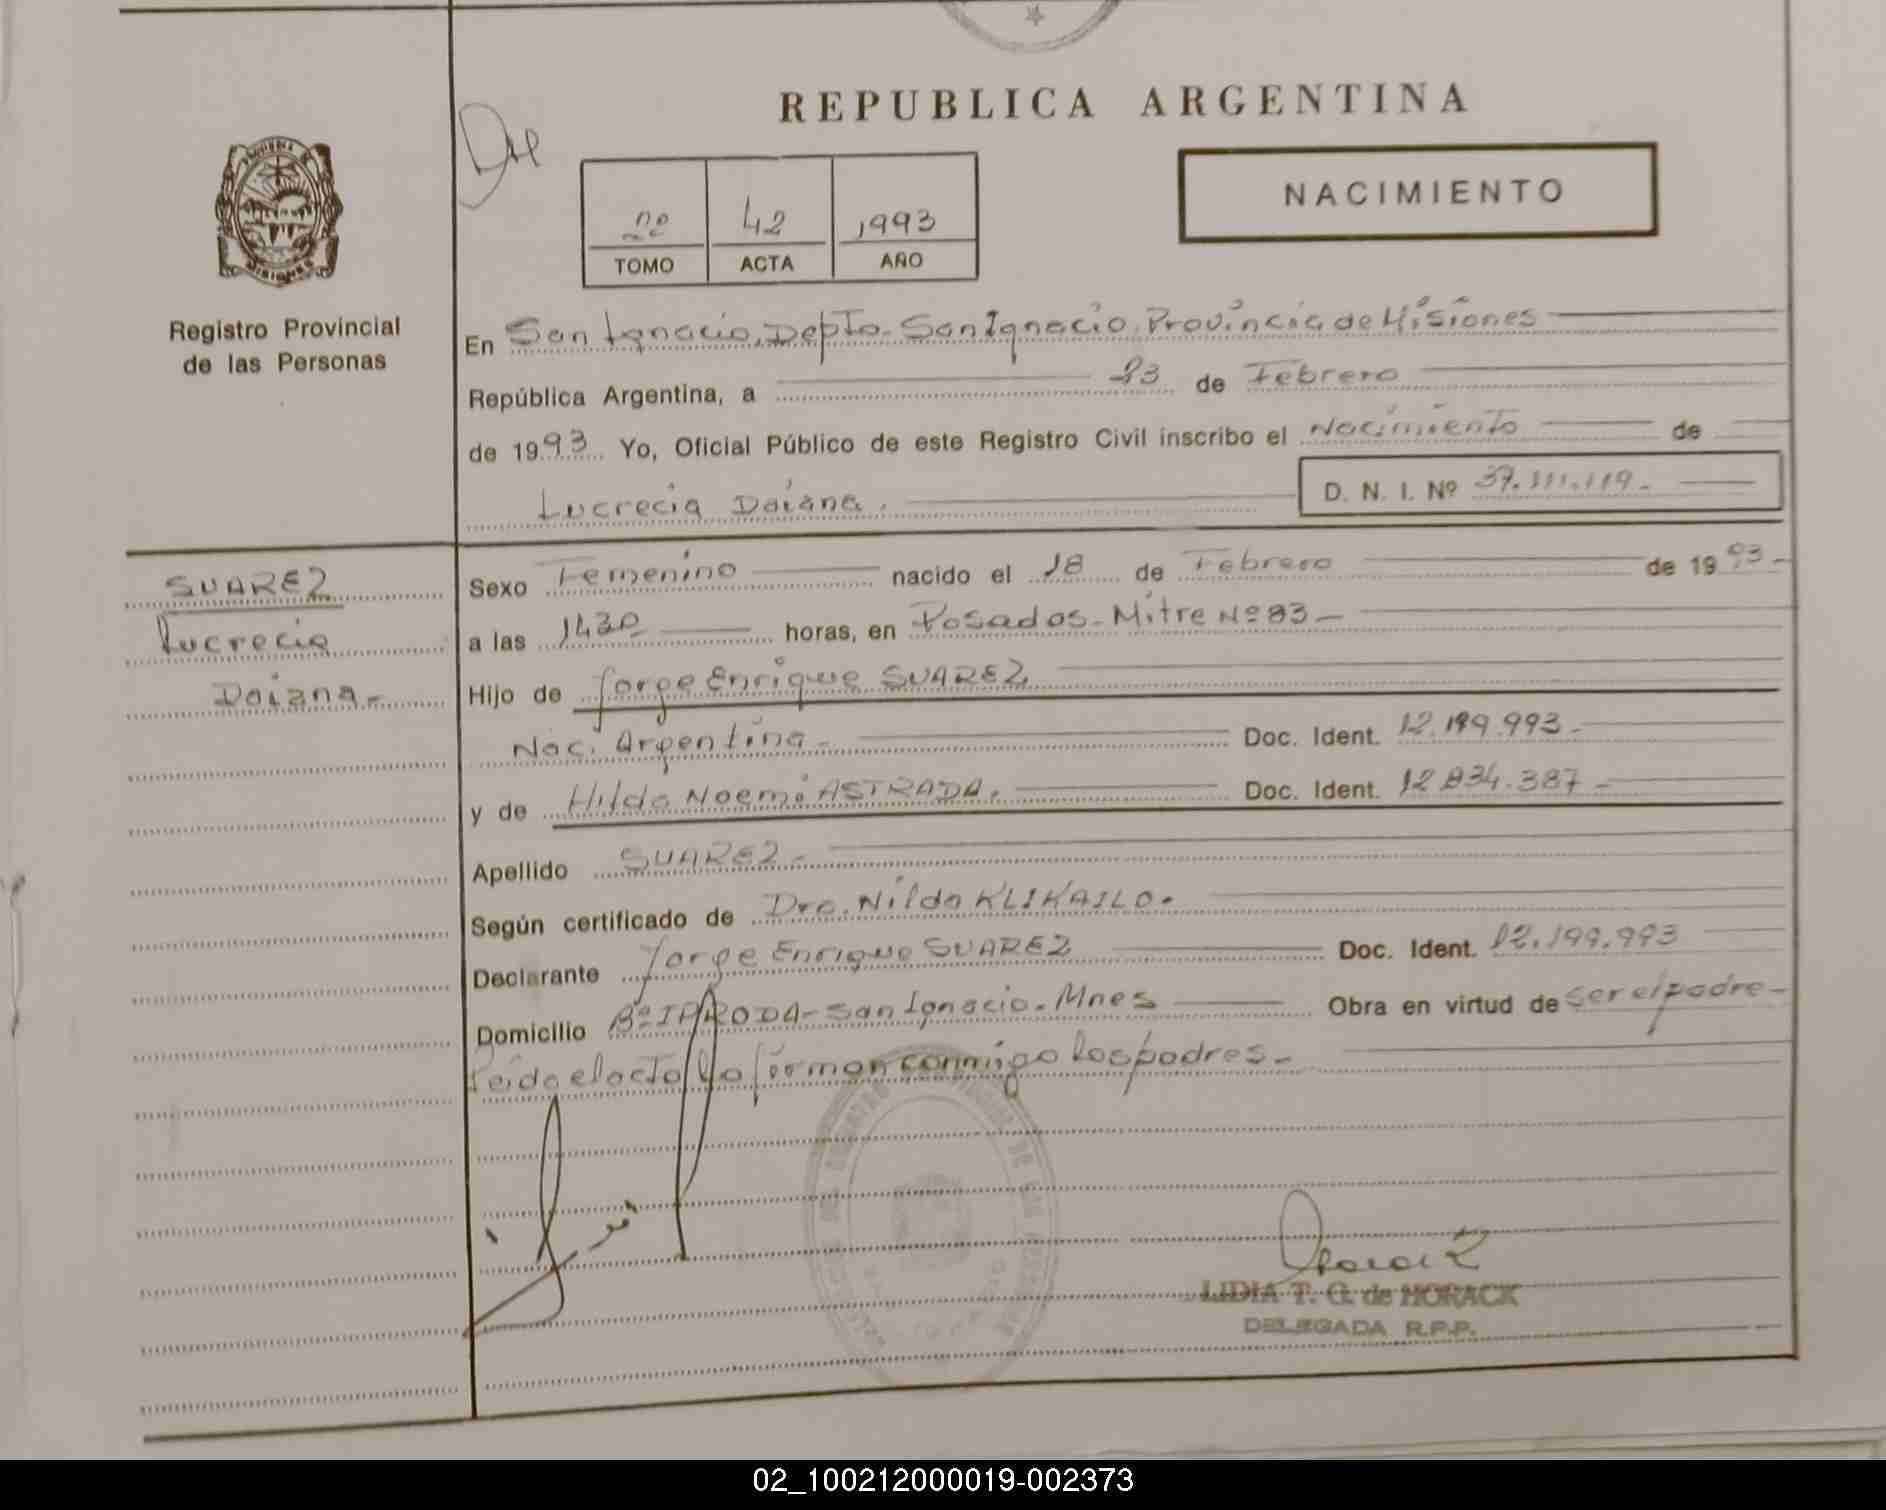 REPUBLICA ARGENTINA
NACIMIENTO
2º 42 1993
TOMO ACTA AÑO
Registro Provincial
de las Personas
En San Ignacio, Depto. San Ignacio, Provincia de Misiones
República Argentina, a 23 de Febrero
de 1993. Yo, Oficial Público de este Registro Civil inscribo el Nacimiento de
Lucrecia Daiana. D. N. I. Nº 37.111.119.-
SUAREZ
Lucrecia
Daiana.-
Sexo Femenino nacido el 18 de Febrero de 1993-
a las 1430 horas, en Posadas-Mitre Nº 83-
Hijo de Jorge Enrique SUAREZ
Nac. Argentina- Doc. Ident. 12.199.993-
y de Hilda Noemi ASTRADA. Doc. Ident. 12.834.387-
Apellido SUAREZ-
Según certificado de Dra. Nilda KLIKAILO.
Declarante Jorge Enrique SUAREZ Doc. Ident. 12.199.993
Domicilio Bº IPRODA-San Ignacio-Mnes Obra en virtud de ser el padre-
Leida el acta la firman conmigo los padres-
LIDIA T. G. de HORACK
DELEGADA R.P.P.
02_100212000019-002373